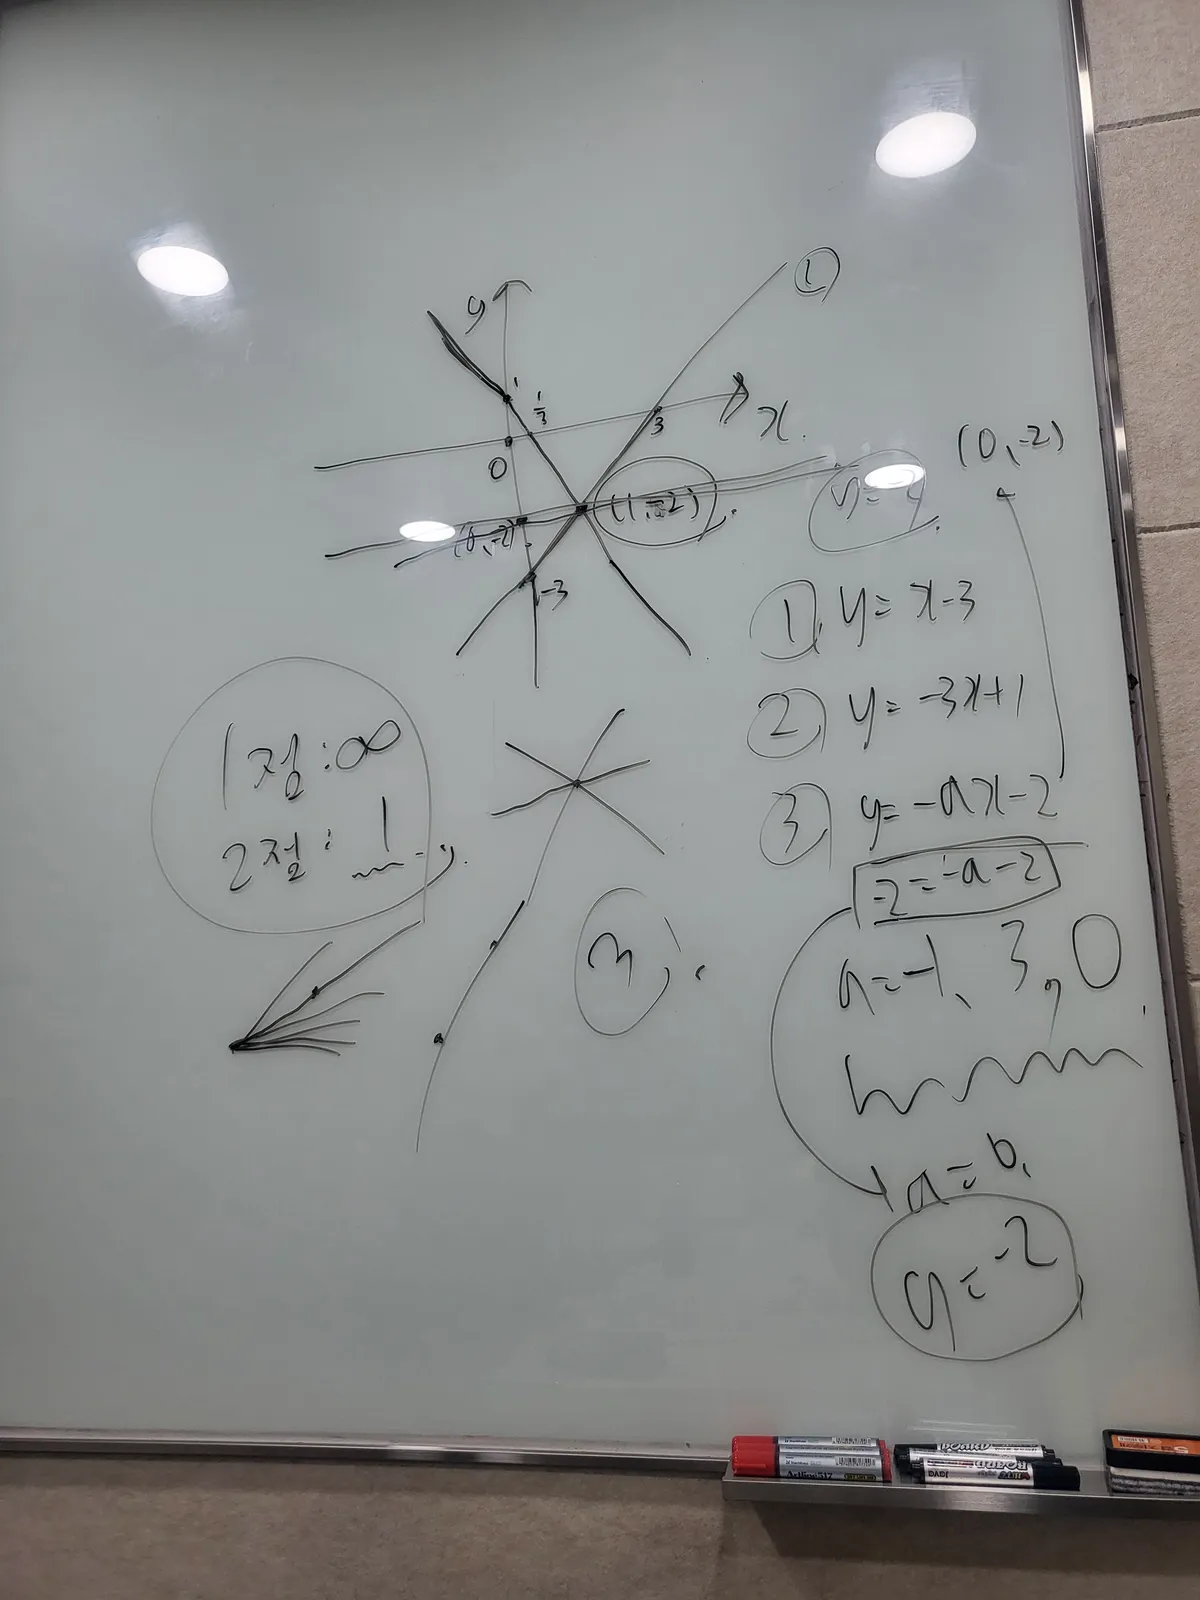 y
①
1
1/3
3
x
0
(0, -2)
(1, -2)
-3
(0, -2)
① y = x-3
② y = -3x+1
③ y = -ax-2
-2 = -a-2
a = -1, 3, 0
a = 0
y = -2
1점 : ∞
2점 : 1
BOARD
DADI
Artline 517